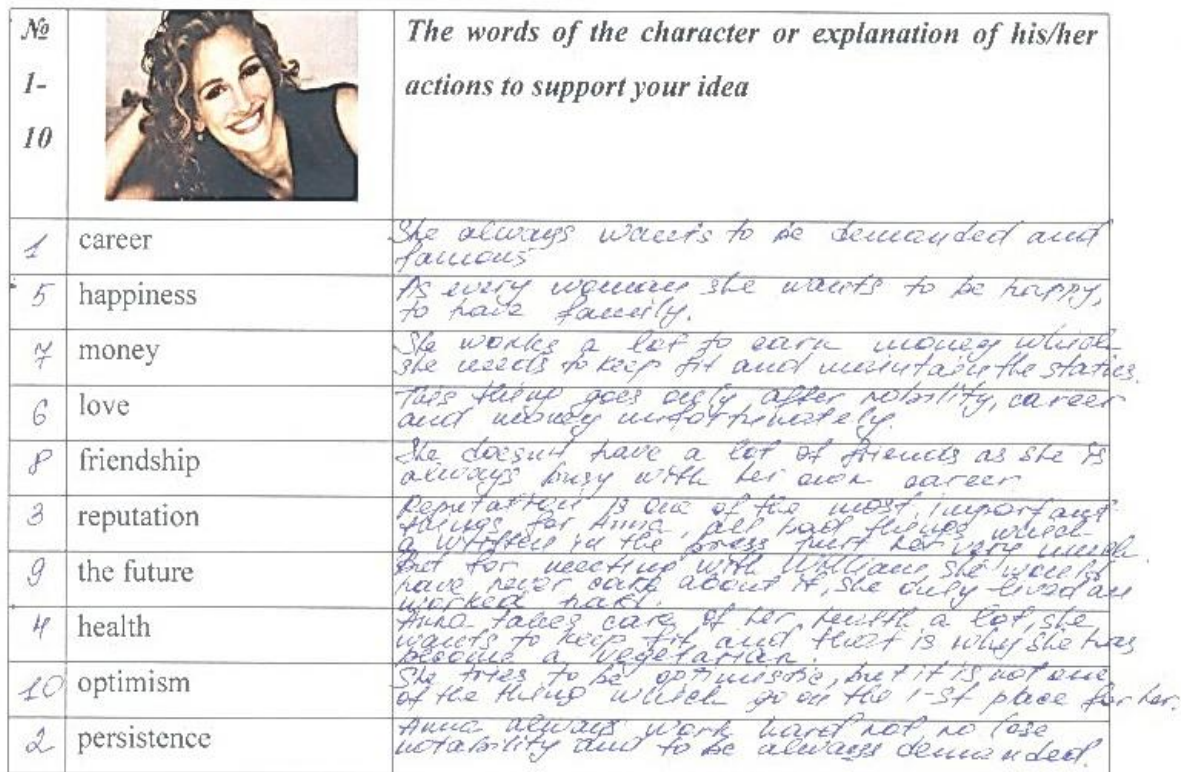 №
1-
10
The words of the character or explanation of his/her
actions to support your idea
1 career She always wants to be demanded and
famous
5 happiness As every woman she wants to be happy,
to have family.
7 money She works a lot to earn money which
she needs to keep fit and maintain the status.
6 love This thing goes only after nobility, career
and money unfortunately.
8 friendship She doesn't have a lot of friends as she is
always busy with her own career
3 reputation Reputation is one of the most important
things for Anna, all bad things which
a written in the press hurt her very much.
9 the future But for meeting with William she would
have never care about it, she only lived an
worked hard.
4 health Anna takes care of her health a lot, she
wants to keep fit and that is why she has
become a vegetarian.
10 optimism She tries to be optimistic, but it is not one
of the thing which go on the 1-st place for her.
2 persistence Anna always work hard not no lose
notability and to be always demanded.